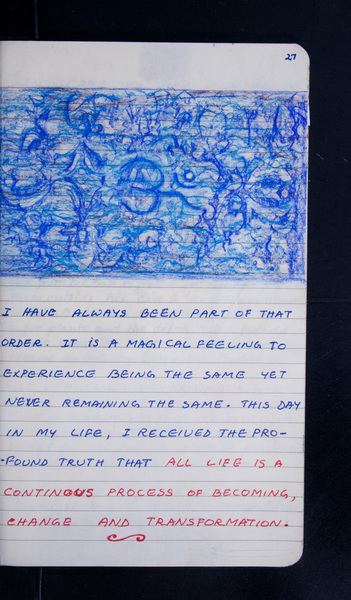 27
I HAVE ALWAYS BEEN PART OF THAT
ORDER. IT IS A MAGICAL FEELING TO
EXPERIENCE BEING THE SAME YET
NEVER REMAINING THE SAME. THIS DAY
IN MY LIFE, I RECEIVED THE PRO-
-FOUND TRUTH THAT ALL LIFE IS A
CONTINOUS PROCESS OF BECOMING,
CHANGE AND TRANSFORMATION.